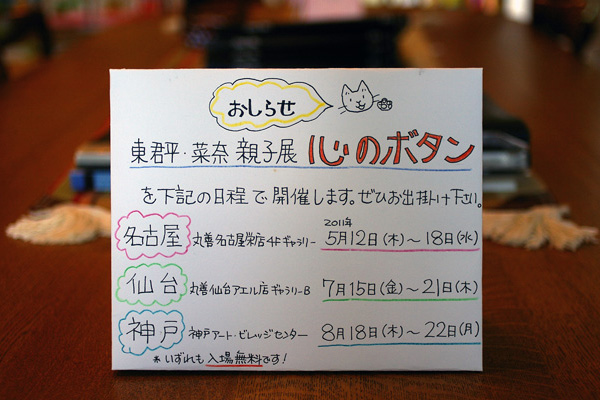 おしらせ
東君平・菜奈 親子展 心のボタン
を下記の日程で開催します。ぜひお出掛け下さい。
2011年
名古屋 丸善名古屋栄店4Fギャラリー 5月12日(木)～18日(水)
仙台 丸善仙台アエル店ギャラリーB 7月15日(金)～21日(木)
神戸 神戸アート・ビレッジセンター 8月18日(木)～22日(月)
* いずれも入場無料です!